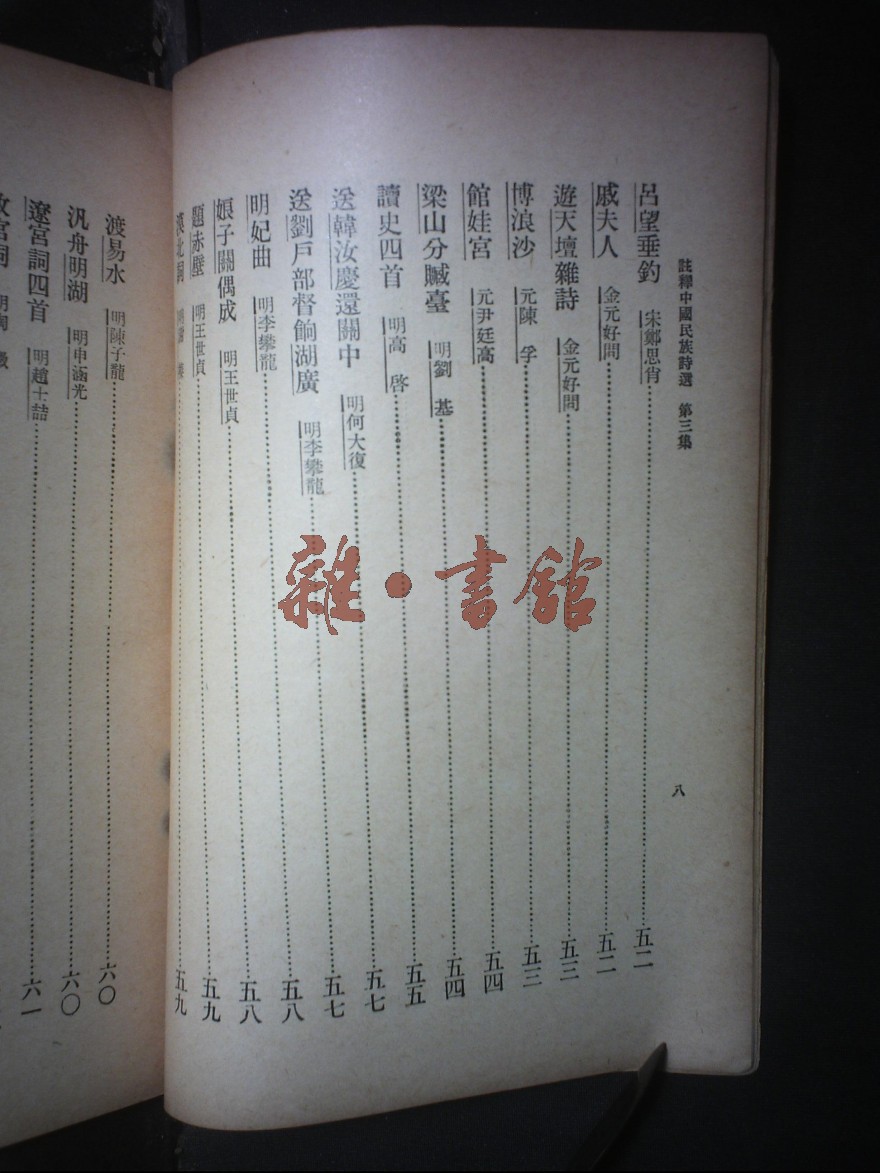 註釋中國民族詩選 第三集
八
呂望垂釣 宋鄭思肖 五二
戚夫人 金元好問 五二
遊天壇雜詩 金元好問 五三
博浪沙 元陳孚 五三
館娃宮 元尹廷高 五四
梁山分贓臺 明劉基 五四
讀史四首 明高啓 五五
送韓汝慶還關中 明何大復 五七
送劉戶部督餉湖廣 明李攀龍 五七
明妃曲 明李攀龍 五八
娘子關偶成 明王世貞 五八
題赤壁 明王世貞 五九
五九
渡易水 明陳子龍 六〇
汎舟明湖 明申涵光 六〇
遼宮詞四首 明趙士喆 六一
宮詞 明
雜·書館